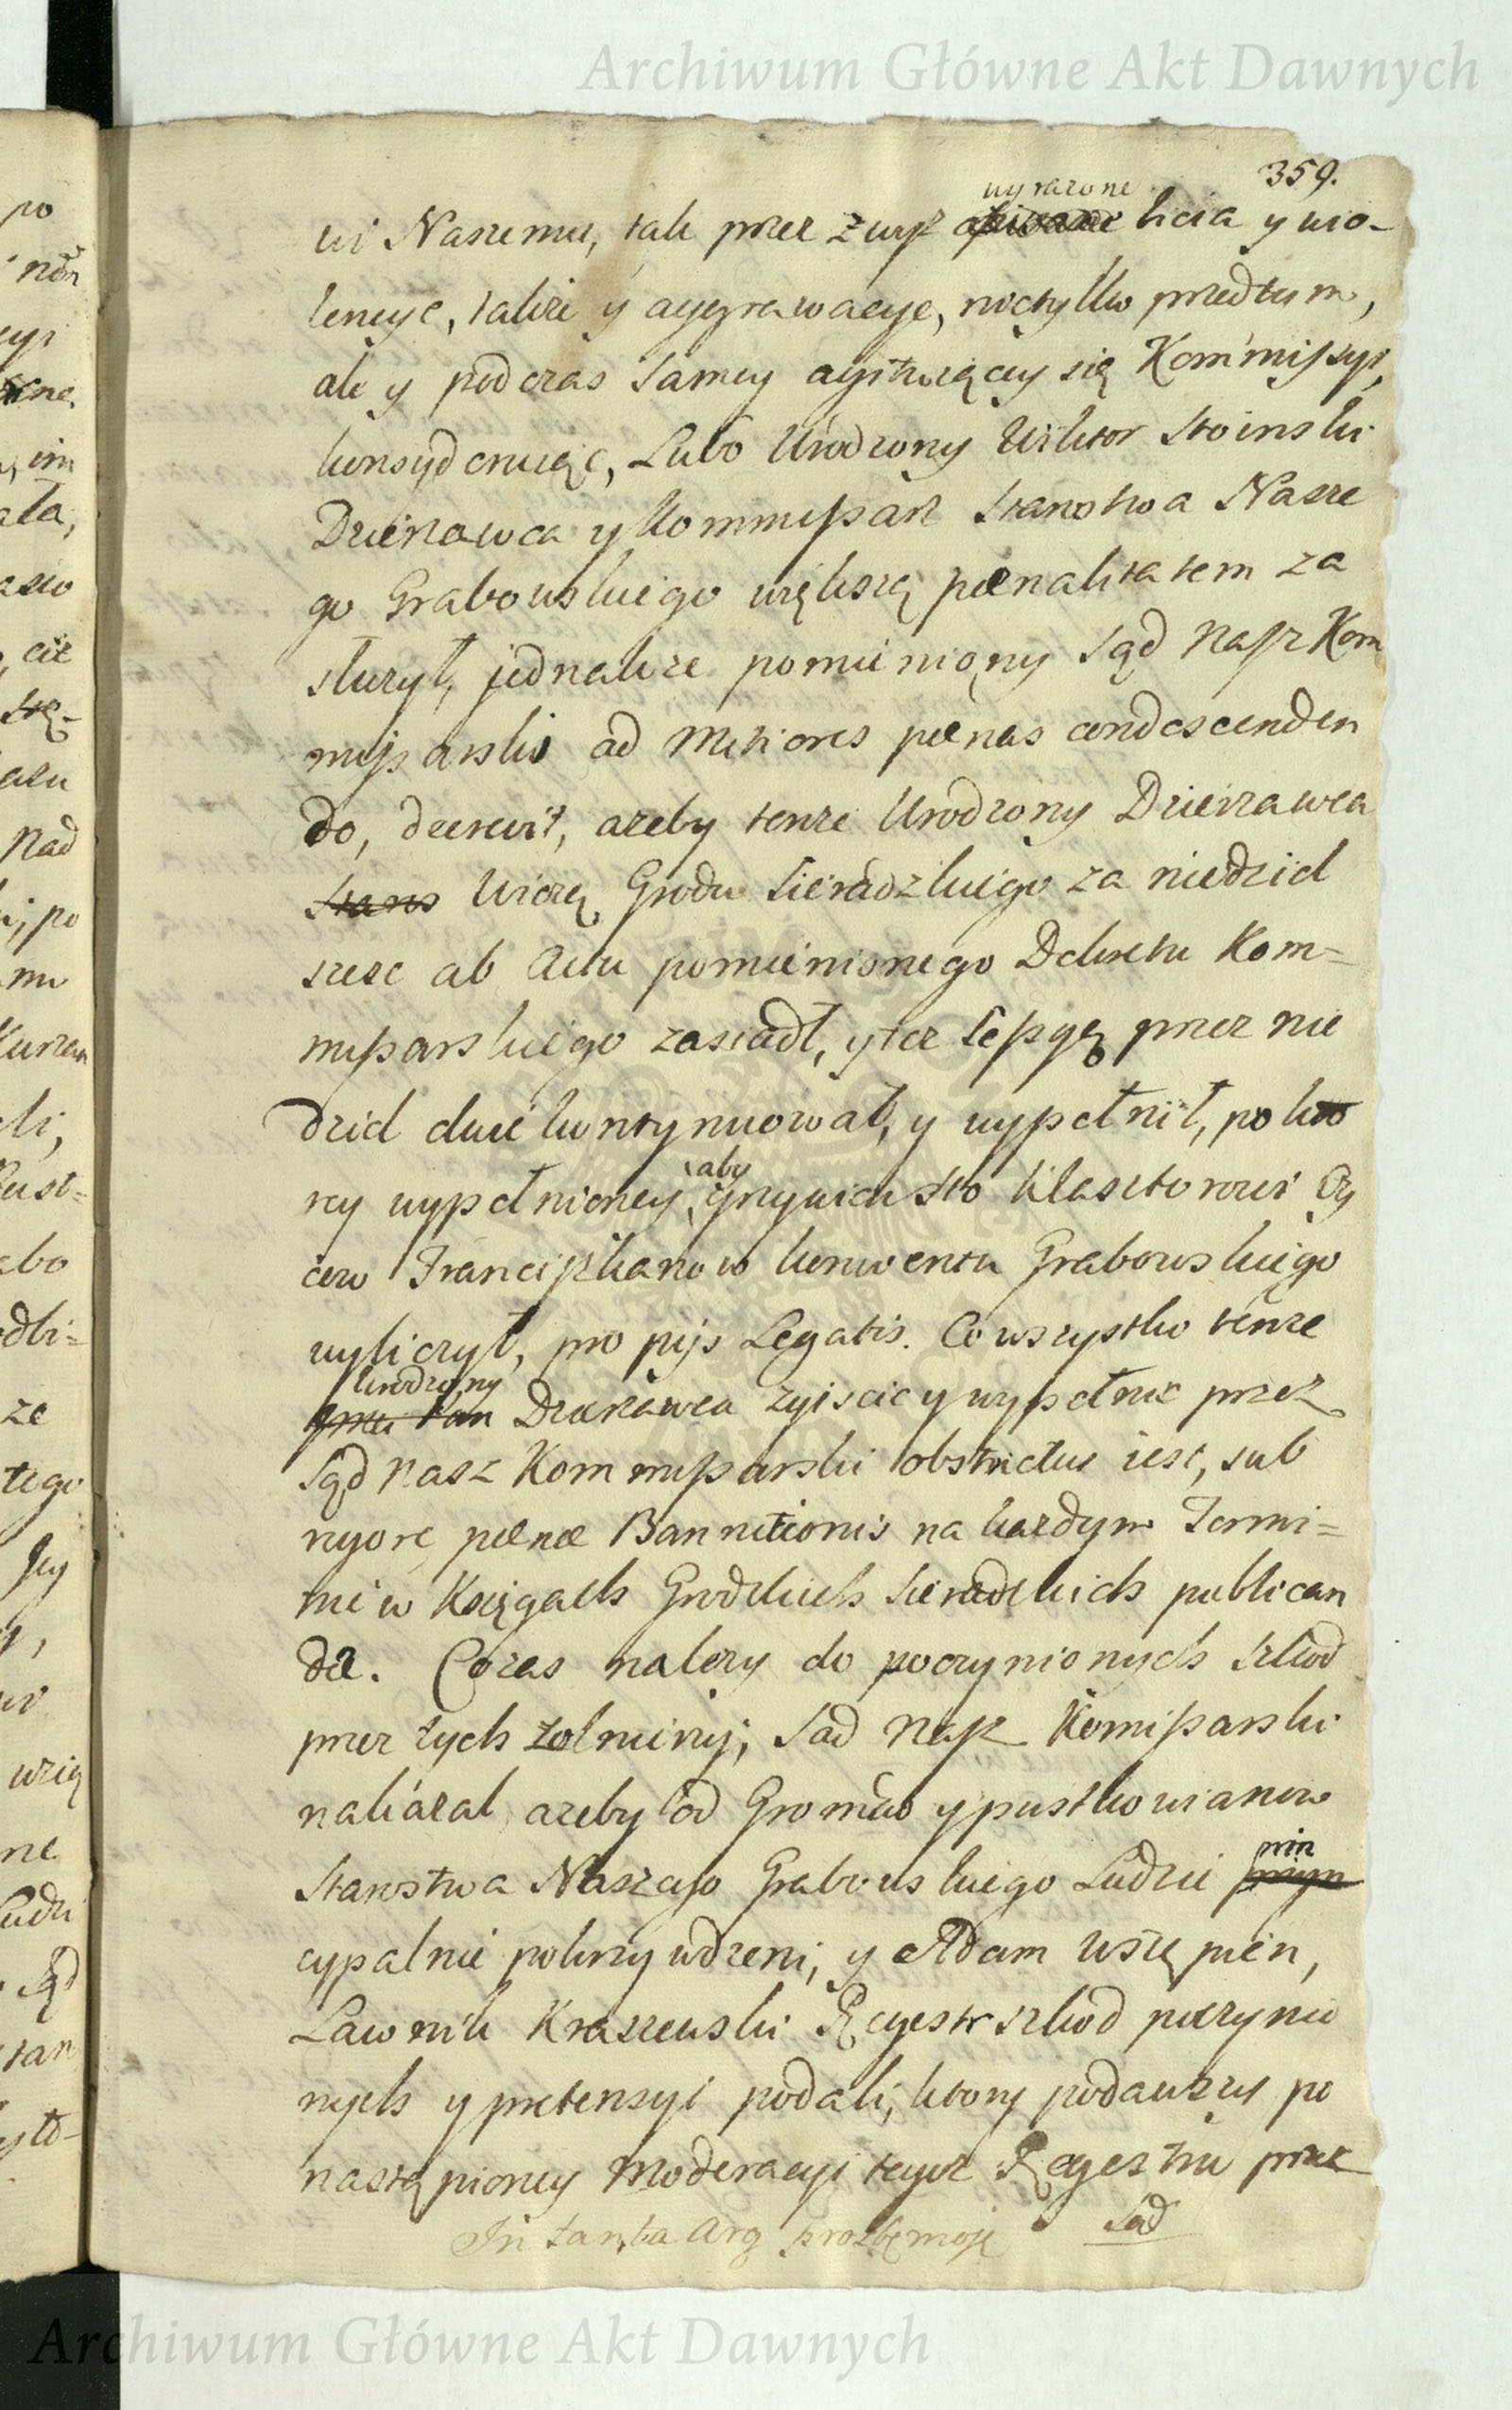 Archiwum Główne Akt Dawnych
359.
wyrazone
wi Naszemu, tak przez zwysz opisane bicia y wio-
lencye, takze y aggrawacye, nietylko przedtym,
ale y podczas samey agituiącey się Kommissyi,
konsyderuiąc, Lubo Urodzony Wiktor Stoinski
Dzierzawca y Kommissarz Starostwa Nasze
go Grabowskiego większą pœnalitatem za
słuzył, jednakze pomieniony Sąd Nasz Kom
missarski ad mitiores pœnas condescenden
do, decrevit, azeby tenze Urodzony Dzierzawca
Stans Wiezą Grodu Sieradzkiego za niedziel
szesc ab Actu pomienionego Dekretu Kom=
missarskiego zasiadł, y tez sessyą przez nie
dziel dwie kontynuował, y wypełnił, po kto
rey wypełnioney, grzywien sto Klasztorowi Oy
aby
cow Franciszkanow konwentu Grabowskiego
wyliczył, pro pijs Legatis. Co wszystko tenze
Urodzony
Jmci Pan Dzierzawca zyiscic y wypełnic przez
Sąd Nasz Kommissarski obstrictus iest, sub
rigore pœnæ Bannitionis na kazdym Termi=
nie w Księgach Grodzkich Sieradzkich publican
dæ. Co zas nalezy do poczynionych szkod
przez tych zolnierzy, Sad Nasz Komissarski
nakazal, azeby od Gromad y pustkowianow
Starostwa Naszego Grabowskiego Ludzie pryn
prin
cypalnie pokrzywdzeni, y Adam Wstępien,
Ławnik Kraszewski Regestr szkod poczynio
nych y pretensyi podali, ktory podawszy po
nastąpioney moderacyi tegoz Regestru przez
Sąd
Archiwum Główne Akt Dawnych